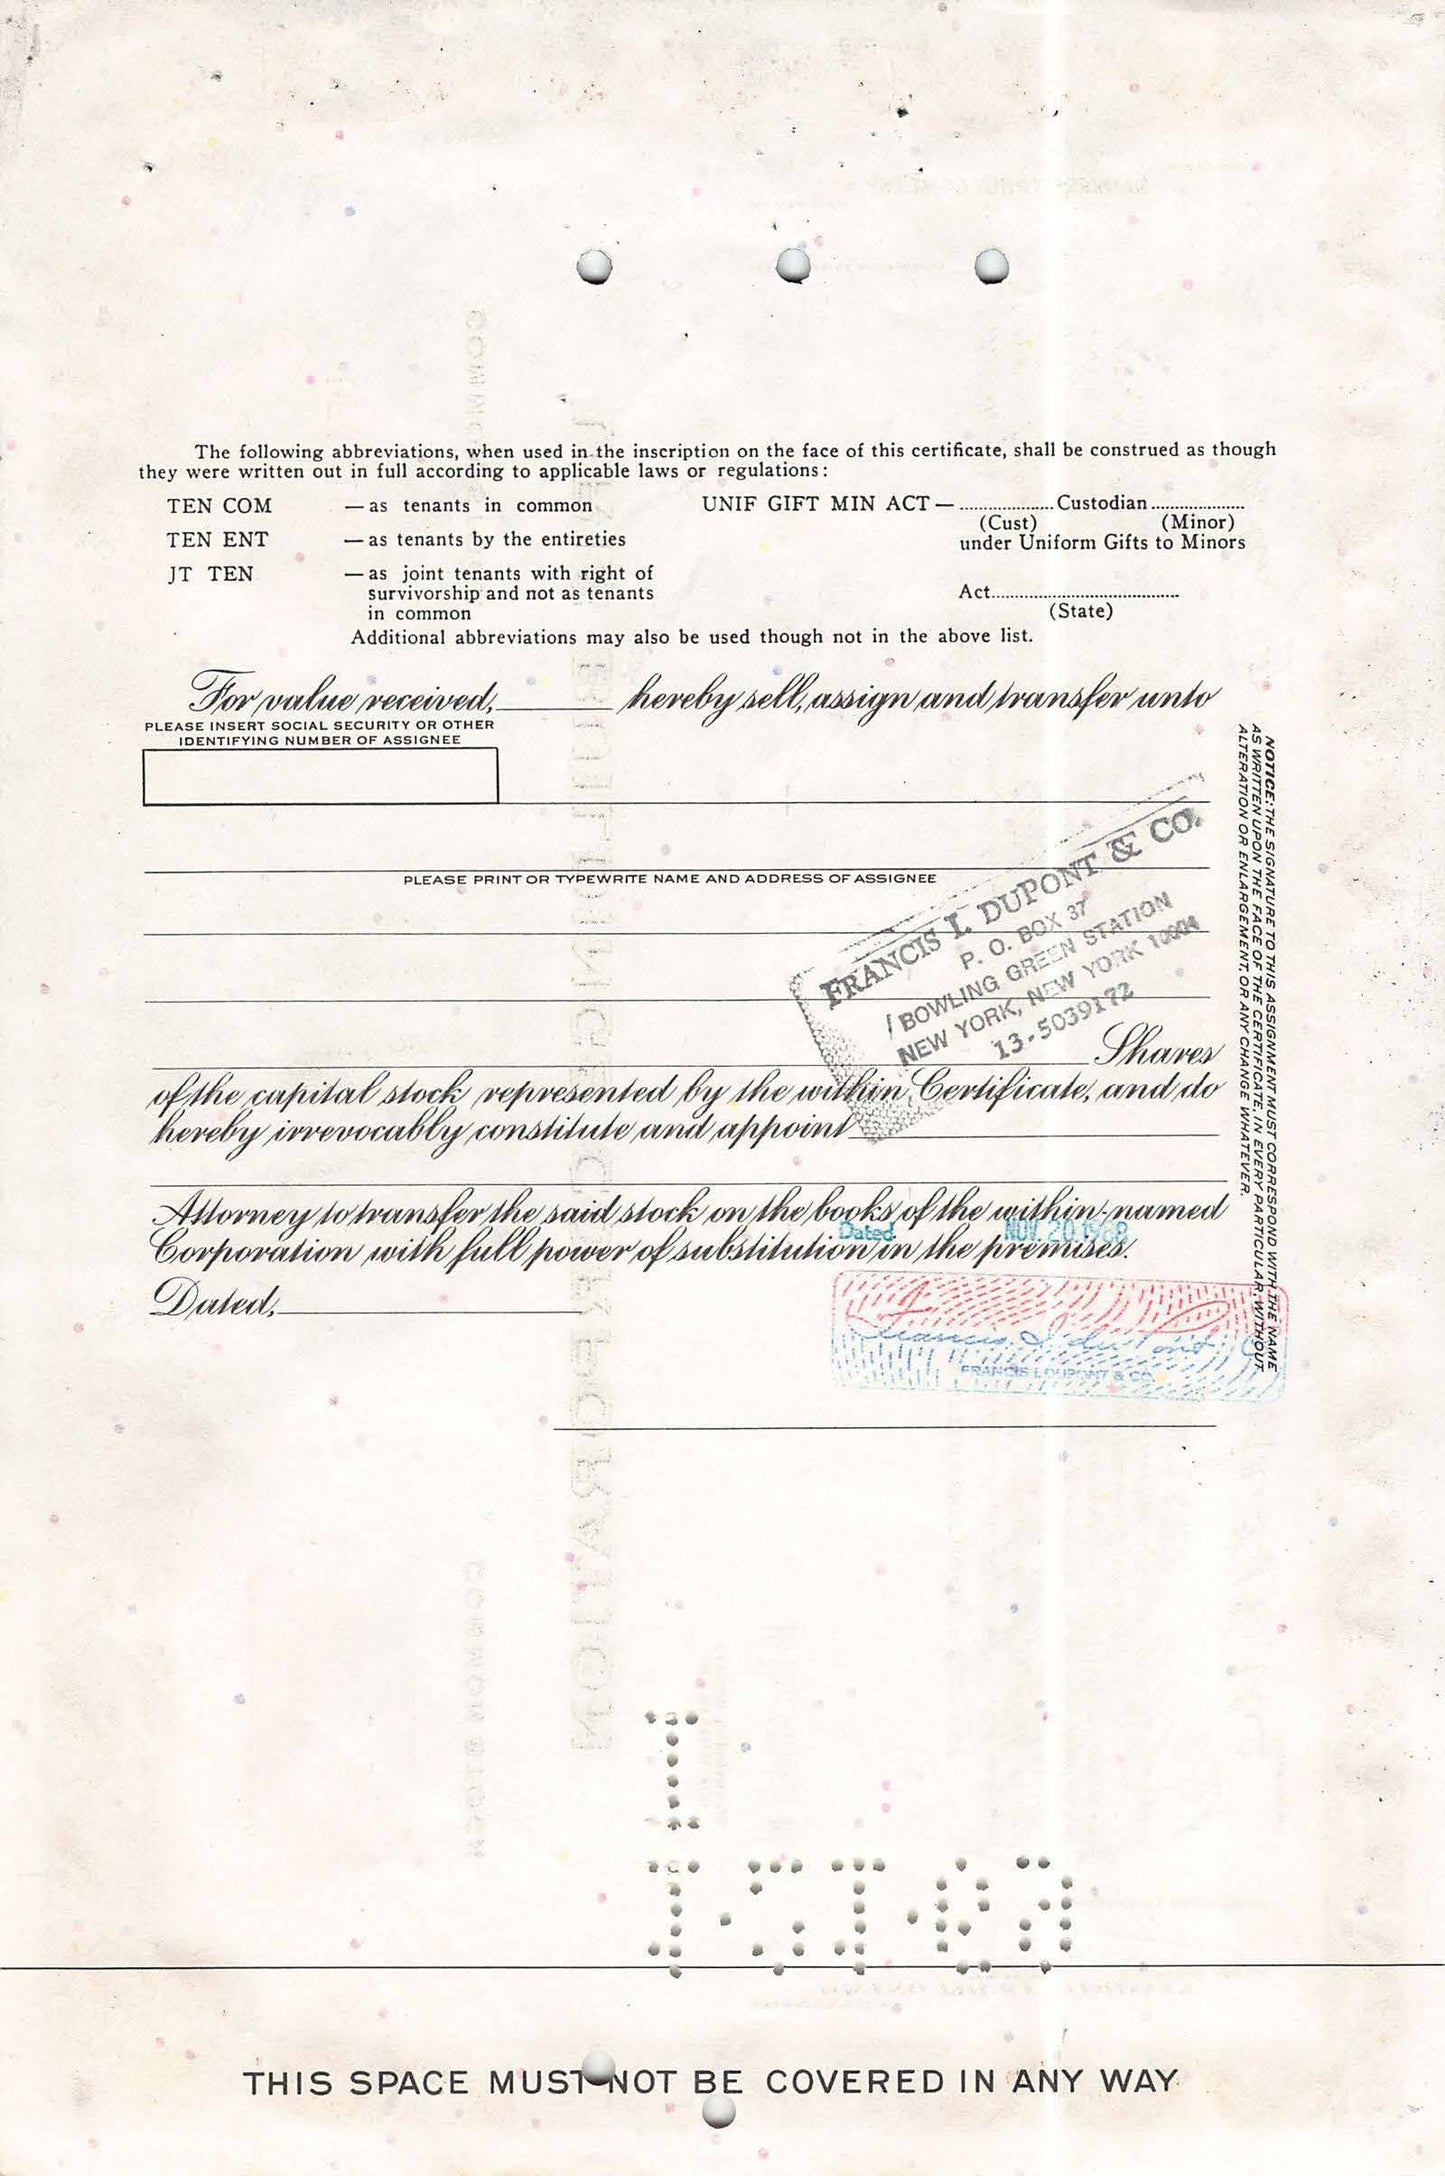 The following abbreviations, when used in the inscription on the face of this certificate, shall be construed as though
they were written out in full according to applicable laws or regulations:
TEN COM — as tenants in common
TEN ENT — as tenants by the entireties
JT TEN — as joint tenants with right of
survivorship and not as tenants
in common
UNIF GIFT MIN ACT — .................... Custodian ....................
(Cust) (Minor)
under Uniform Gifts to Minors
Act........................................
(State)
Additional abbreviations may also be used though not in the above list.
For value received, ________ hereby sell, assign and transfer unto
PLEASE INSERT SOCIAL SECURITY OR OTHER
IDENTIFYING NUMBER OF ASSIGNEE
PLEASE PRINT OR TYPEWRITE NAME AND ADDRESS OF ASSIGNEE
FRANCIS I. DUPONT & CO.
P. O. BOX 37
BOWLING GREEN STATION
NEW YORK, NEW YORK 10004
13-5039172
Shares
of the capital stock represented by the within Certificate, and do
hereby irrevocably constitute and appoint
Attorney to transfer the said stock on the books of the within-named
Corporation with full power of substitution in the premises.
Dated NOV. 20. 1968
Dated,
Francis I. duPont
FRANCIS I. DUPONT & CO.
NOTICE: THE SIGNATURE TO THIS ASSIGNMENT MUST CORRESPOND WITH THE NAME
AS WRITTEN UPON THE FACE OF THE CERTIFICATE, IN EVERY PARTICULAR, WITHOUT
ALTERATION OR ENLARGEMENT, OR ANY CHANGE WHATEVER.
THIS SPACE MUST NOT BE COVERED IN ANY WAY